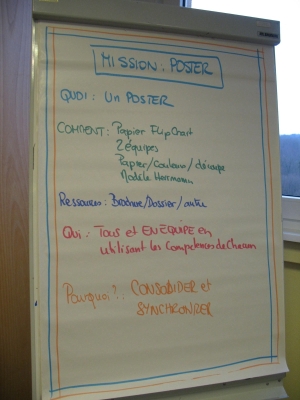 MISSION: POSTER
QUOI: Un POSTER
COMMENT: Papier FlipChart
2 équipes
Papier/Couleurs/découpe
Modèle Herrmann
Ressources: Brochure/Dossier/autre
Qui: Tous et EN ÉQUIPE en
utilisant les Compétences de Chacun
Pourquoi?: CONSOLIDER et
SYNCHRONISER